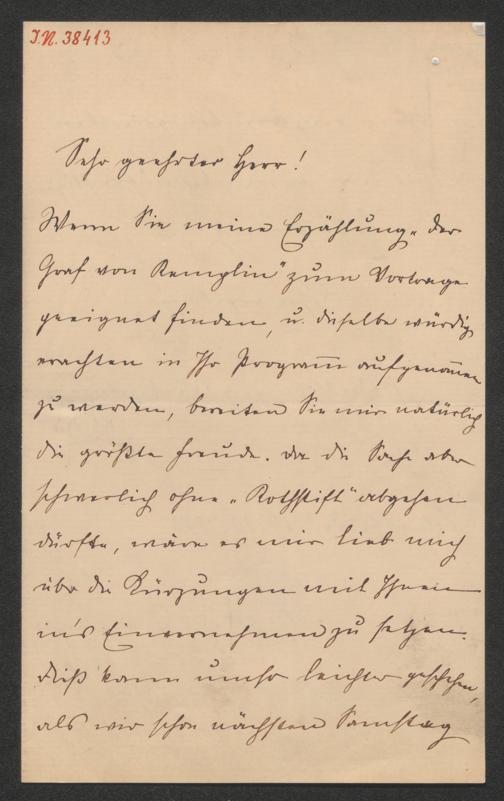 I.N. 38413
Sehr geehrter Herr!
Wenn Sie meine Erzählung „der
Graf von Remplin" zum Vortrage
geeignet finden, u. dieselbe würdig
erachten in Ihr Program̅ aufgenom̅en
zu werden, bereiten Sie mir natürlich
die größte Freude. Da die Sache aber
schwerlich ohne „Rothstift" abgehen
dürfte, wäre es mir lieb mich
über die Kürzungen mit Ihnen
in's Einvernehmen zu setzen.
Dieß kann umso leichter geschehen,
als wir schon nächsten Samstag